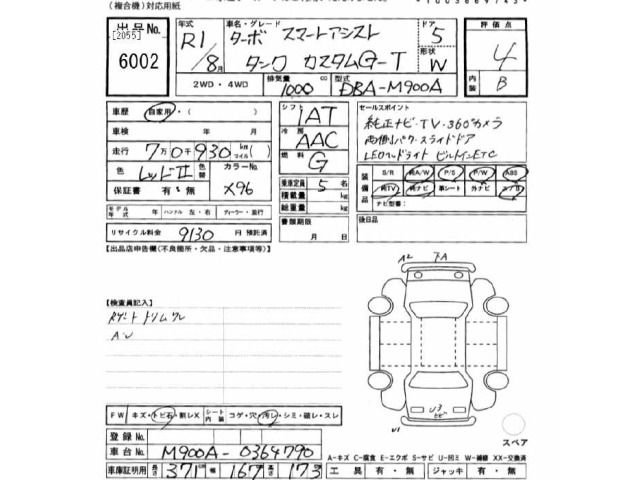 (複合機) 対応用紙
出品No.
[2055]
6002
年式
R1/8月
車名・グレード
ターボ スマートアシスト
タンク カスタムG-T
ドア
5
形状
W
評価点
4
内装
B
2WD・4WD
排気量
1000 cc
型式
DBA-M900A
車歴 自家用・( )
車検 年 月
走行 7万0千930 km(マイル)
色 レッドII 色替
カラーNo. X96
保証書 有・無
モデル年式 年 ハンドル 左・右 ディーラー・並行
リサイクル料金 9130 円 預託済
シフト 1AT
冷房 AAC
燃料 G
乗車定員 5 名
積載量 kg
総重量 kg
書類期限
月 日
セールスポイント
純正ナビ・TV・360°カメラ
両側パワースライドドア
LEDヘッドライト ビルトインETC
装備品
S/R 純A/W P/S P/W ABS
純TV 純ナビ 革シート 外ナビ エアB
ナビ型番:
後日品
【出品店申告欄(不良箇所・欠品・注意事項等)】
【検査員記入】
Rゲートトリムワレ
A・U
A2 下A
U3
トビ
U1
スペア
FW キズ・トビ石・割レX
シート内装 コゲ・穴・汚レ・シミ・破レ・スレ
登録No.
車台No. M900A-0364790
車庫証明用 長さ 371 cm 幅 167 高さ 173 cm
A-キズ C-腐食 E-エクボ S-サビ U-凹ミ W-補修 XX-交換済
工具 有・無 ジャッキ 有・無